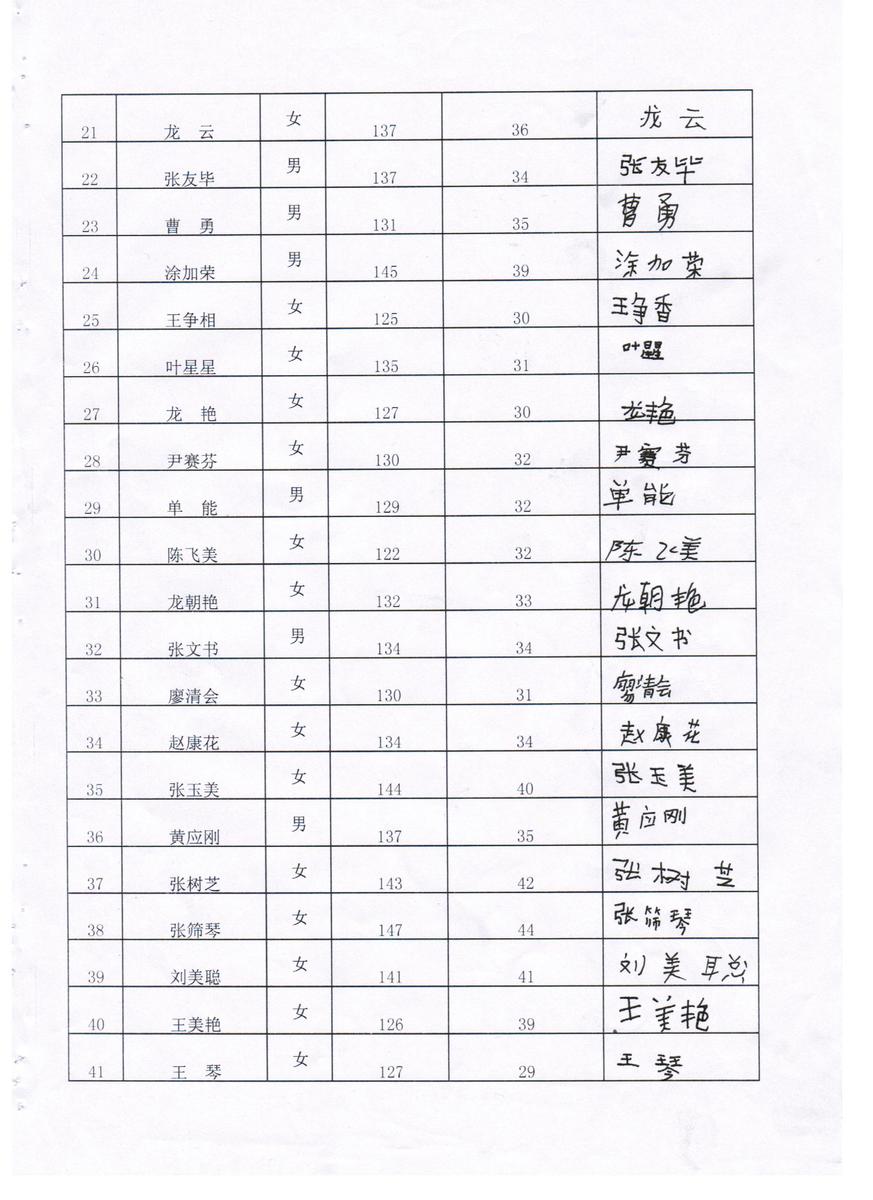 21 龙 云 女 137 36 龙 云
22 张友毕 男 137 34 张友毕
23 曹 勇 男 131 35 曹 勇
24 涂加荣 男 145 39 涂加荣
25 王争相 女 125 30 王争香
26 叶星星 女 135 31 叶星星
27 龙 艳 女 127 30 龙艳
28 尹赛芬 女 130 32 尹赛芬
29 单 能 男 129 32 单能
30 陈飞美 女 122 32 陈飞美
31 龙朝艳 女 132 33 龙朝艳
32 张文书 男 134 34 张文书
33 廖清会 女 130 31 廖清会
34 赵康花 女 134 34 赵康花
35 张玉美 女 144 40 张玉美
36 黄应刚 男 137 35 黄应刚
37 张树芝 女 143 42 张树芝
38 张筛琴 女 147 44 张筛琴
39 刘美聪 女 141 41 刘美聪
40 王美艳 女 126 39 王美艳
41 王 琴 女 127 29 王琴